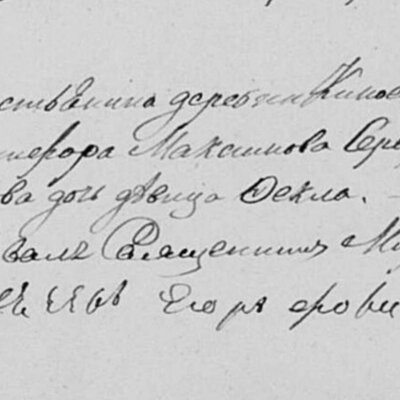 ственина деревни Кинов
терора Максимова Сер
ва дочь дѣвица Ѳекла.
валъ Священникъ М
Егоръ